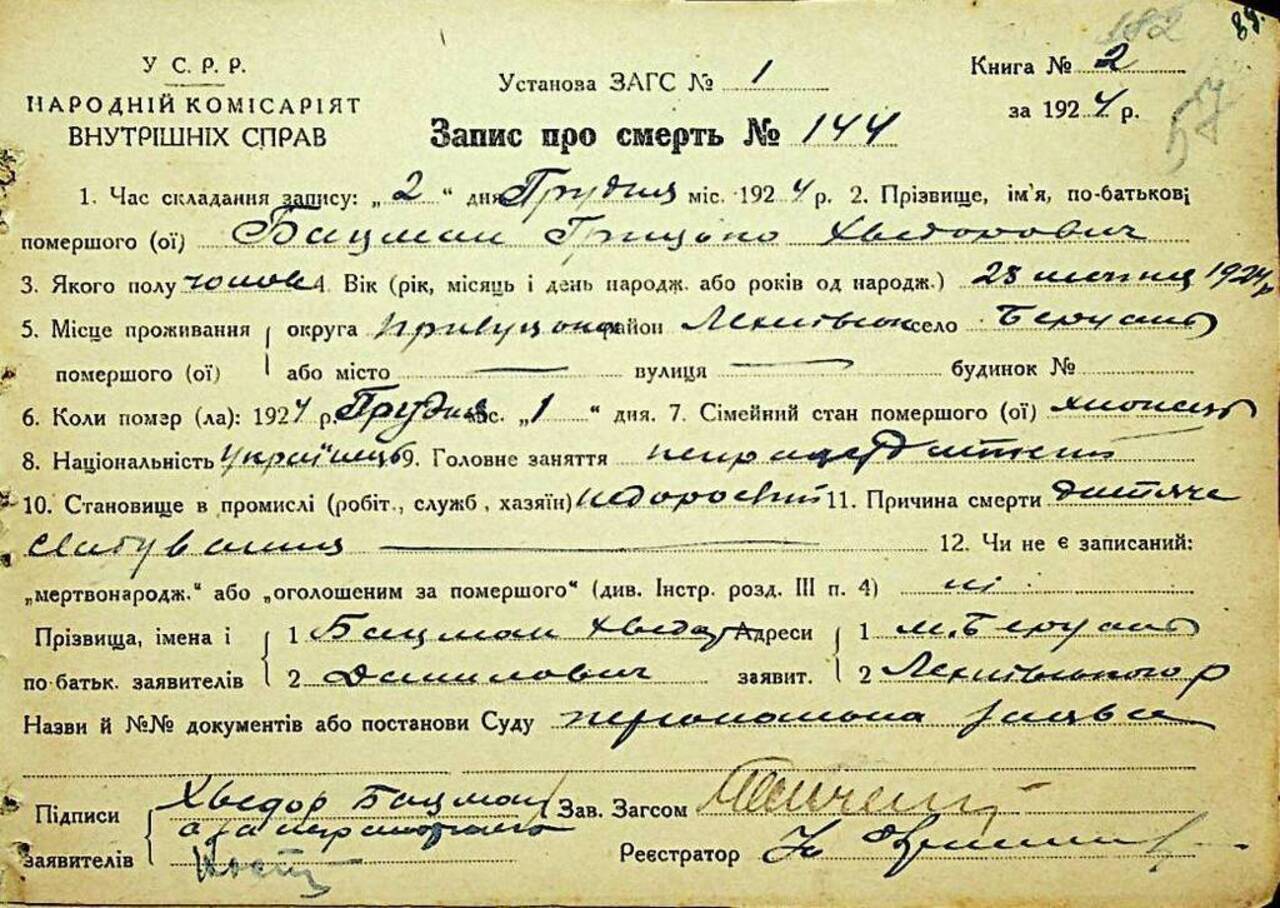 182 89.
У С. Р. Р.
НАРОДНІЙ КОМІСАРІЯТ
ВНУТРІШНІХ СПРАВ
Установа ЗАГС № 1
Книга № 2
за 1924 р.
57
Запис про смерть № 144
1. Час складання запису: „2“ дня Грудня міс. 1924 р. 2. Прізвище, ім'я, по-батькові
помершого (ої) Бацман Грицько Хведорович
3. Якого полу чолов 4. Вік (рік, місяць і день народж. або років од народж.) 1924 р
5. Місце проживання округа район село
помершого (ої) або місто — вулиця — будинок №
6. Коли помэр (ла): 1924 р. Грудня міс. „1“ дня. 7. Сімейний стан помершого (ої) хлопець
8. Національність Українець 9. Головне заняття
10. Становище в промислі (робіт., служб, хазяїн) 11. Причина смерти дитяче
слабування — 12. Чи не є записаний:
„мертвонародж.“ або „оголошеним за помершого“ (див. Інстр. розд. III п. 4) ні
Прізвища, імена і 1 Бацман Хведор Адреси 1 м.
по батьк. заявителів 2 Данилович заявит. 2
Назви й №№ документів або постанови Суду персональна заява
Підписи Хведор Бацман Зав. Загсом
заявителів Реєстратор